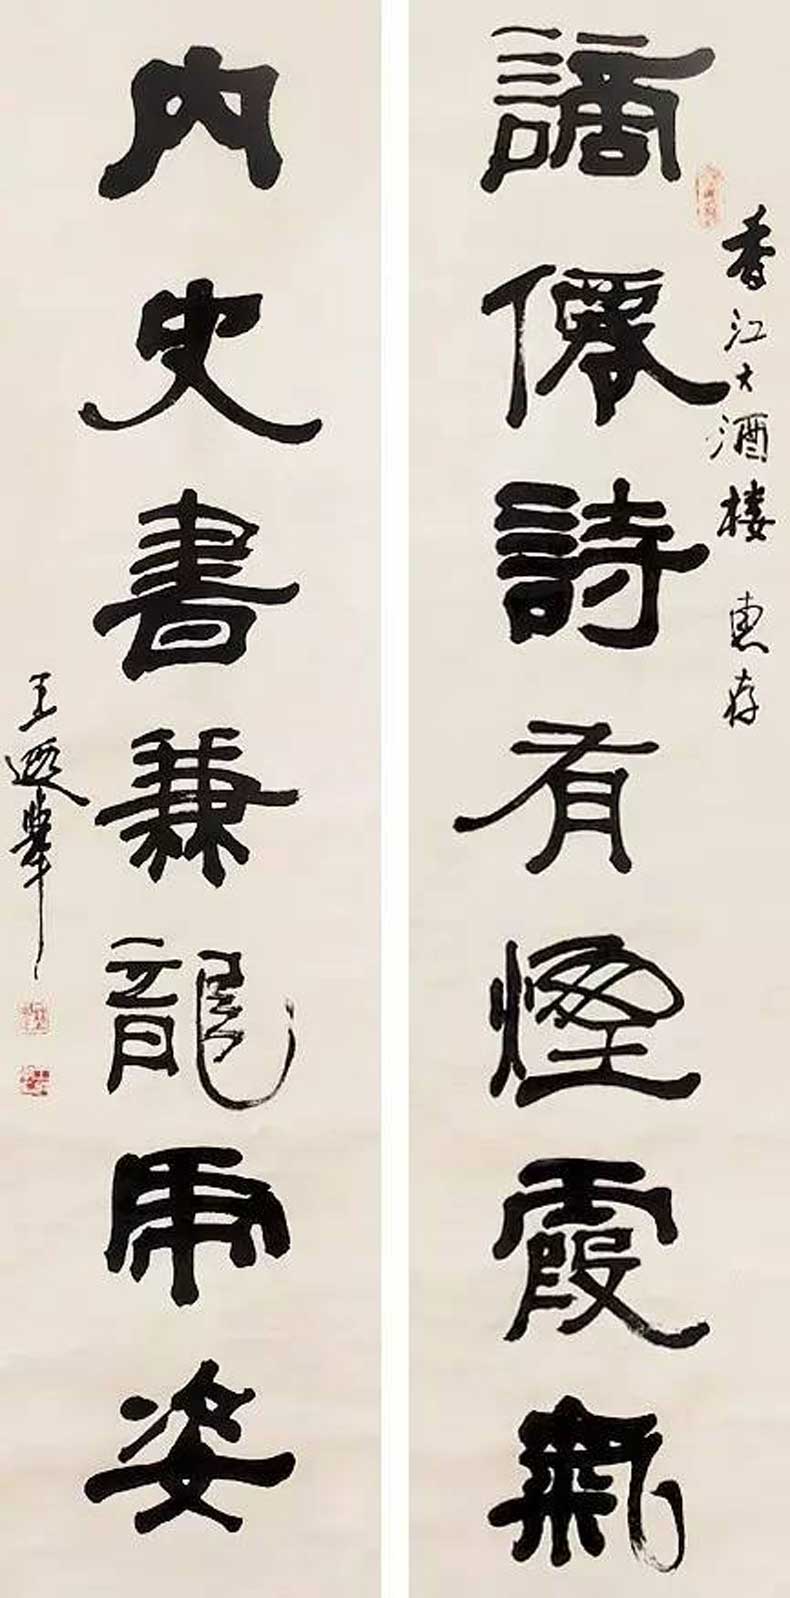 香江大酒楼 惠存
謫僊詩有煙霞氣
內史書兼龍虎姿
王遐舉